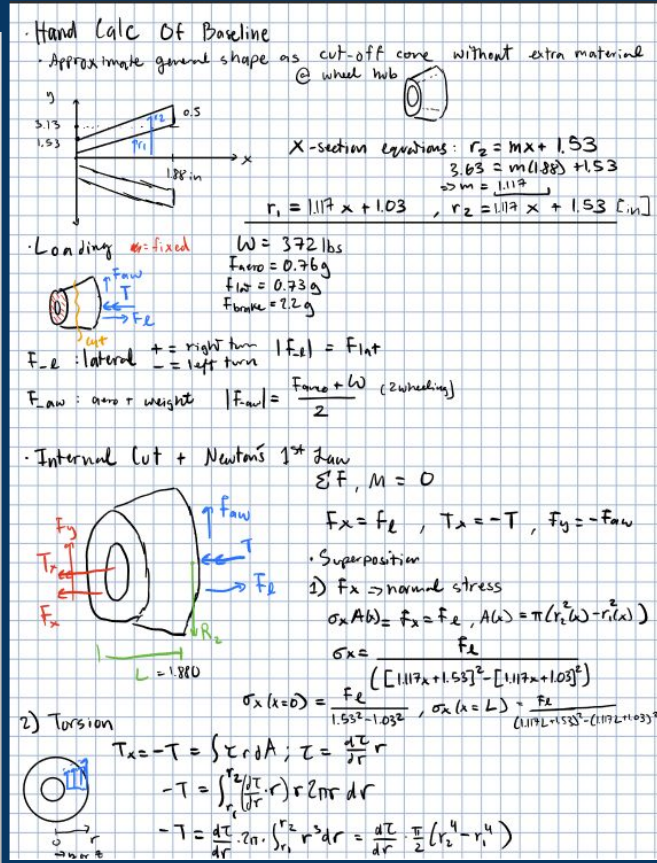 · Hand Calc Of Baseline
· Approximate general shape as cut-off cone without extra material
@ wheel hub
y
3.13
1.53
r2
r1
0.5
1.88 in
x
X-section equations: r₂ = mx + 1.53
3.63 = m(1.88) + 1.53
⇒ m = 1.117
r₁ = 1.117 x + 1.03 , r₂ = 1.117 x + 1.53 [in]
· Loading = fixed
W = 372 lbs
Faero = 0.76g
Flat = 0.73g
Fbrake = 2.2g
Faw
T
Fℓ
cut
F_ℓ : lateral + = right turn |F_ℓ| = Flat
- = left turn
F_aw : aero + weight |F_aw| = Faero + W / 2 (2 wheeling)
· Internal Cut + Newton's 1st Law
ΣF, M = 0
Fx = Fℓ , Tx = -T , Fy = -Faw
Fy
Tx
Fx
Faw
T
Fℓ
R₂
L = 1.880
· Superposition
1) Fx ⇒ normal stress
σx A(x) = Fx = Fℓ , A(x) = π(r₂²(x) - r₁²(x))
σx = Fℓ / ([1.117x + 1.53]² - [1.117x + 1.03]²)
σx (x=0) = Fℓ / 1.53² - 1.03² , σx (x = L) = Fℓ / (1.117L + 1.53)² - (1.117L + 1.03)²
2) Torsion
Tx = -T = ∫ τ r dA ; τ = dτ/dr r
-T = ∫r₁^r₂ (dτ/dr · r) r 2πr dr
-T = dτ/dr · 2π · ∫r₁^r₂ r³ dr = dτ/dr · π/2 (r₂⁴ - r₁⁴)
0
r